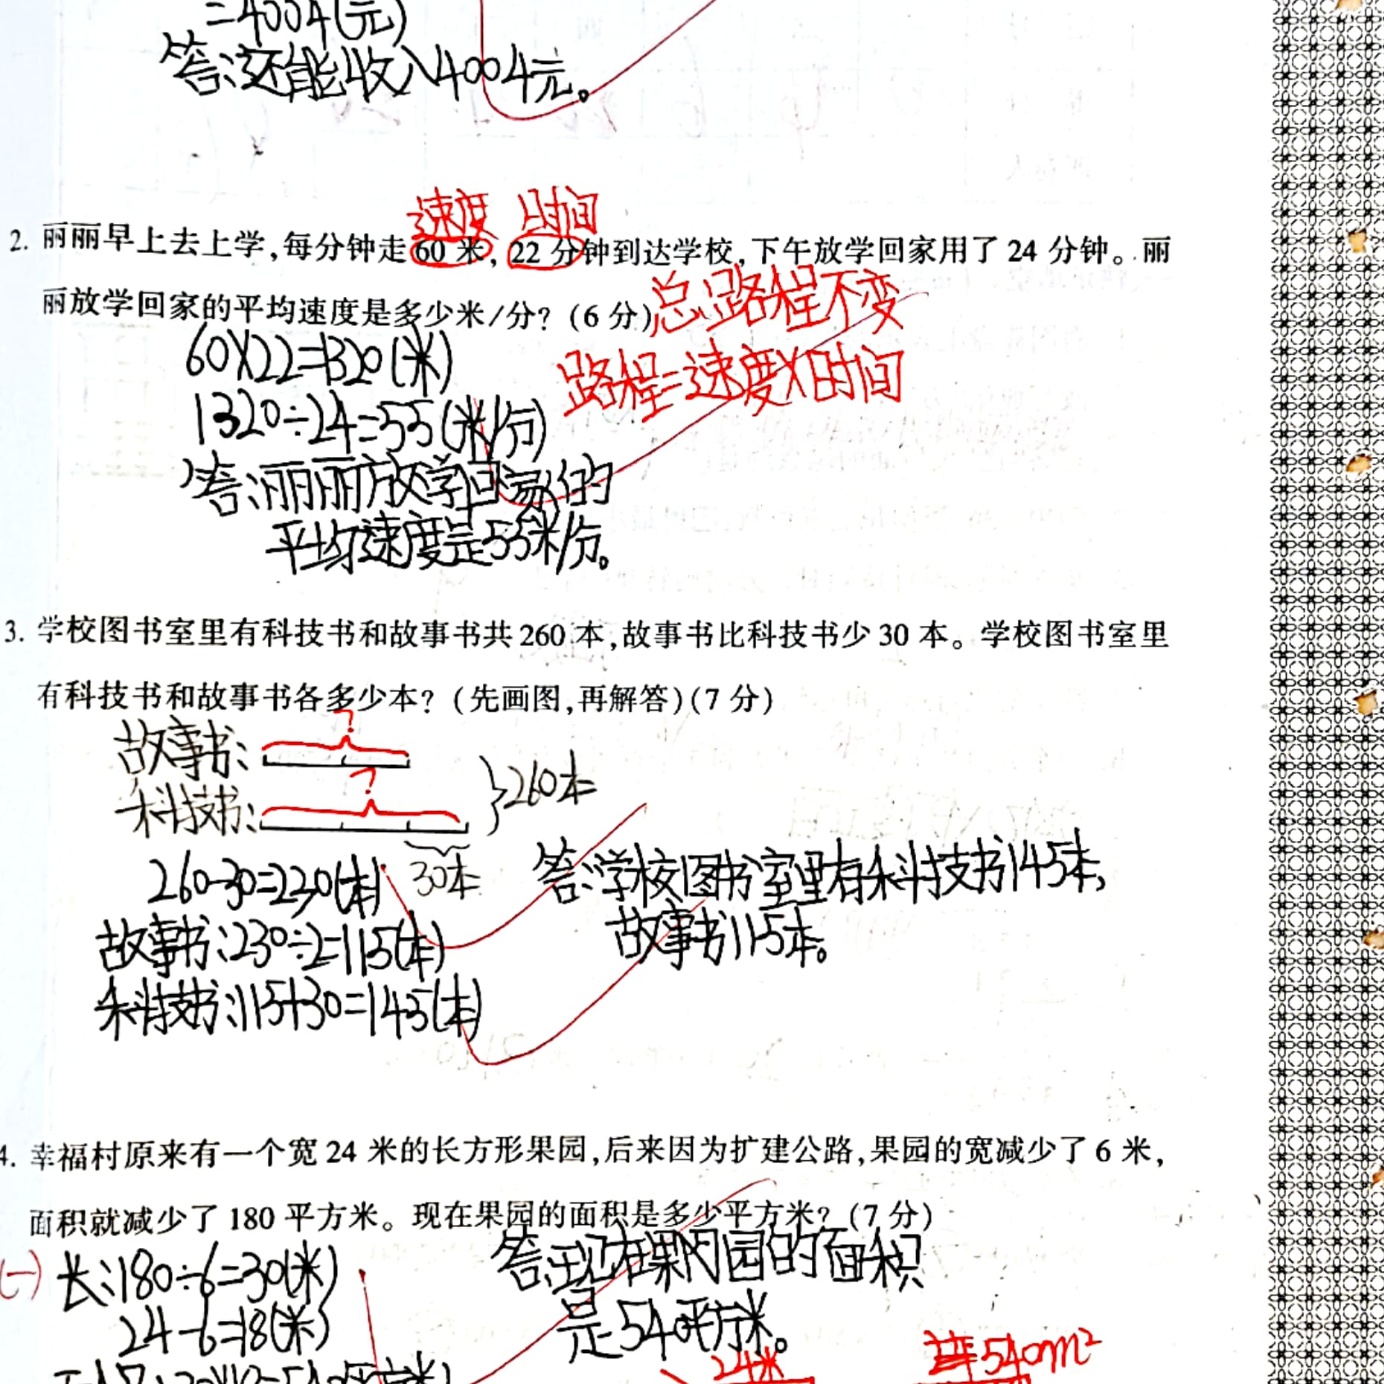 =4004(元)
答:还能收入4004元。
速度 时间
2. 丽丽早上去上学,每分钟走60米,22分钟到达学校,下午放学回家用了24分钟。丽
丽放学回家的平均速度是多少米/分?(6分)
总路程不变
60×22=1320(米)
路程=速度×时间
1320÷24=55(米/分)
答:丽丽放学回家的
平均速度是55米/分。
3. 学校图书室里有科技书和故事书共260本,故事书比科技书少30本。学校图书室里
有科技书和故事书各多少本?(先画图,再解答)(7分)
?
故事书:
?
科技书:
}260本
30本
260-30=230(本)
故事书:230÷2=115(本)
科技书:115+30=145(本)
答:学校图书室里有科技书145本,
故事书115本。
4. 幸福村原来有一个宽24米的长方形果园,后来因为扩建公路,果园的宽减少了6米,
面积就减少了180平方米。现在果园的面积是多少平方米?(7分)
(一) 长:180÷6=30(米)
24-6=18(米)
答:现在果园的面积
是540平方米。
24米
=540m²